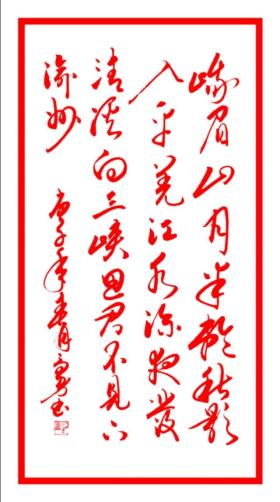 峨眉山月半輪秋影
入平羌江水流夜發
清溪向三峽思君不見下
渝州
庚子年春月 书